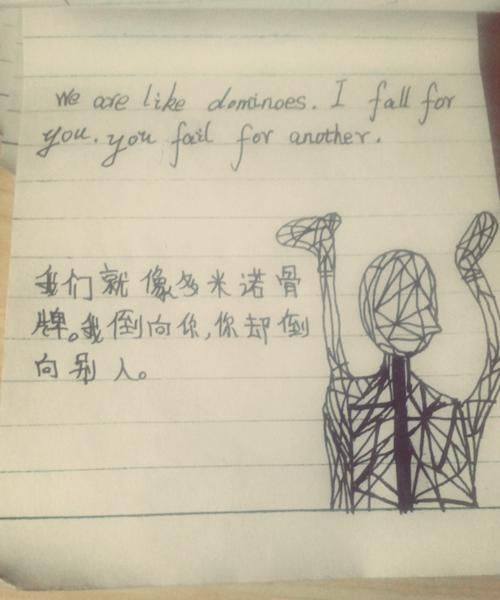 we are like dominoes. I fall for
you. you fail for another.
我们就像多米诺骨
牌。我倒向你,你却倒
向别人。